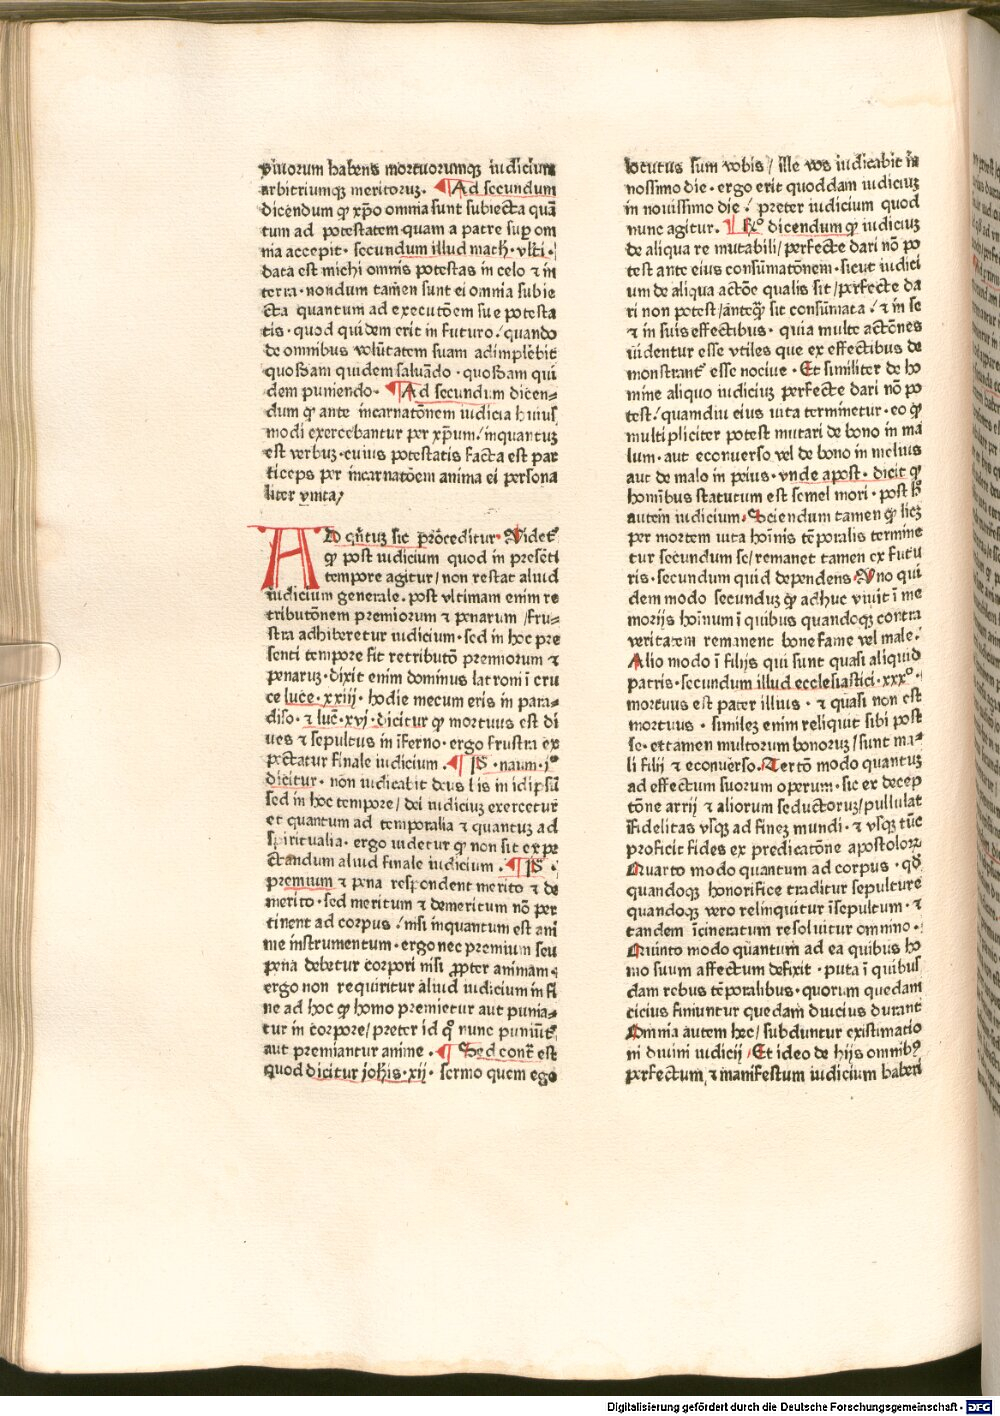 viuorum habens mortuorumqꝫ iudicium
arbitriumqꝫ meritoruꝫ. ¶ Ad secundum
dicendum ꝙ xp̄o omnia sunt subiecta quā
tum ad potestatem quam a patre suꝑ om
nia accepit · secundum illud math̄ · vlti ·
data est michi omnis potestas in celo ⁊ in
terra · nondum tamen sunt ei omnia subie
cta quantum ad executōem sue potesta
tis · quod quidem erit in futuro / quando
de omnibus volūtatem suam adimplebit
quosdam quidem saluādo · quosdam qui
dem puniendo · ¶ Ad secundum dicen⸗
dum ꝙ ante incarnatōnem iudicia huius
modi exercebantur per xp̄um / inquantuꝫ
est verbuꝫ · cuius potestatis facta est par
ticeps per incarnatōem anima ei persona
liter vnita /
AD qn̄tuꝫ sic ꝓceditur · Videt᷑
ꝙ post iudicium quod in presēti
tempore agitur / non restat aliud
iudicium generale . post vltimam enim re
tributōnem premiorum ⁊ penarum / fru⸗
stra adhiberetur iudicium · sed in hoc pre
senti tempore fit retributō premiorum ⁊
penaruꝫ · dixit enim dominus latroni ī cru
ce luce · xxiij · hodie mecum eris in para⸗
diso · ⁊ luc̄ · xvj · dicitur ꝙ mortuus est di
ues ⁊ sepultus in īferno · ergo frustra ex
pectatur finale iudicium . ¶ P̄ · naum · jº
dicitur · nōn iudicabit deus bis in idipsū
sed in hoc tempore / dei iudiciuꝫ exercetur
et quantum ad temporalia ⁊ quantuꝫ ad
spiritualia · ergo videtur ꝙ non sit expe
ctandum aliud finale iudicium . ¶ P̄ ·
premium ⁊ pena respondent merito ⁊ de
merito · sed meritum ⁊ demeritum nō per
tinent ad corpus / nisi inquantum est ani
me instrumentum · ergo nec premium seu
pena debetur corpori nisi ꝓpter animam ·
ergo non requiritur aliud iudicium in fi
ne ad hoc ꝙ homo premietur aut punia⸗
tur in corpore / preter id qͦ nunc puniūt᷑
aut premiantur anime . ¶ Sed cont̄ est
quod dicitur joh̄is · xij · sermo quem ego
locutus sum vobis / ille vos iudicabit in
nossimo die · ergo erit quoddam iudiciuꝫ
in nouissimo die / preter iudicium quod
nunc agitur . ¶ Rº dicendum ꝙ iudiciuꝫ
de aliqua re mutabili / perfecte dari nō po
test ante eius consūmatōnem · sicut iudici
um de aliqua actōe qualis sit / perfecte da
ri non potest / anteqꝫ sit consūmata / ⁊ in se
⁊ in suis effectibus · quia multe actōnes
uidentur esse vtiles que ex effectibus de
monstrant᷑ esse nociue · Et similiter de ho
mine aliquo iudiciuꝫ perfecte dari nō po
test / quamdiu eius uita terminetur · eo ꝙ
multipliciter potest mutari de bono in ma
lum · aut econuerso vel de bono in melius
aut de malo in peius · vnde apost · dicit ꝙ
homībus statutum est semel mori · post h̄
autem iudicium . Sciendum tamen ꝙ liꝫ
per mortem uita hoīnis tēporalis termine
tur secundum se / remanet tamen ex futu
ris · secundum quid dependens Vno qui
dem modo secunduꝫ ꝙ adhuc viuit ī me
morijs hoīnum ī quibus quandoqꝫ contra
veritatem remanent bone fame vel male ·
Alio modo ī filijs qui sunt quasi aliquid
patris · secundum illud ecclesiastici · xxxº ·
mortuus est pater illius · ⁊ quasi non est
mortuus · similez enim reliquit sibi post
se · et tamen multorum bonoruꝫ / sunt ma⸗
li filij ⁊ econuerso . Tertō modo quantuꝫ
ad effectum suorum operum · sic ex decep
tōne arrij ⁊ aliorum seductoruꝫ / pullulat
īfidelitas vsqꝫ ad fineꝫ mundi · ⁊ vsqꝫ tūc
proficit fides ex predicatōne apostoloꝝ
Quarto modo quantum ad corpus · qd̄
quandoqꝫ honorifice traditur sepulture
quandoqꝫ vero relinquitur īsepultum · ⁊
tandem īcineratum resoluitur omnino ·
Quinto modo quantum ad ea quibus ho
mo suum affectum defixit · puta ī quibus
dam rebus tēporalibus · quorum quedam
cicius finiuntur quedam diucius durant
Omnia autem hec / subduntur existimatio
ni diuini iudicij . Et ideo de hijs omnibꝰ
perfectum ⁊ manifestum iudicium haberi
Digitalisierung gefördert durch die Deutsche Forschungsgemeinschaft · DFG